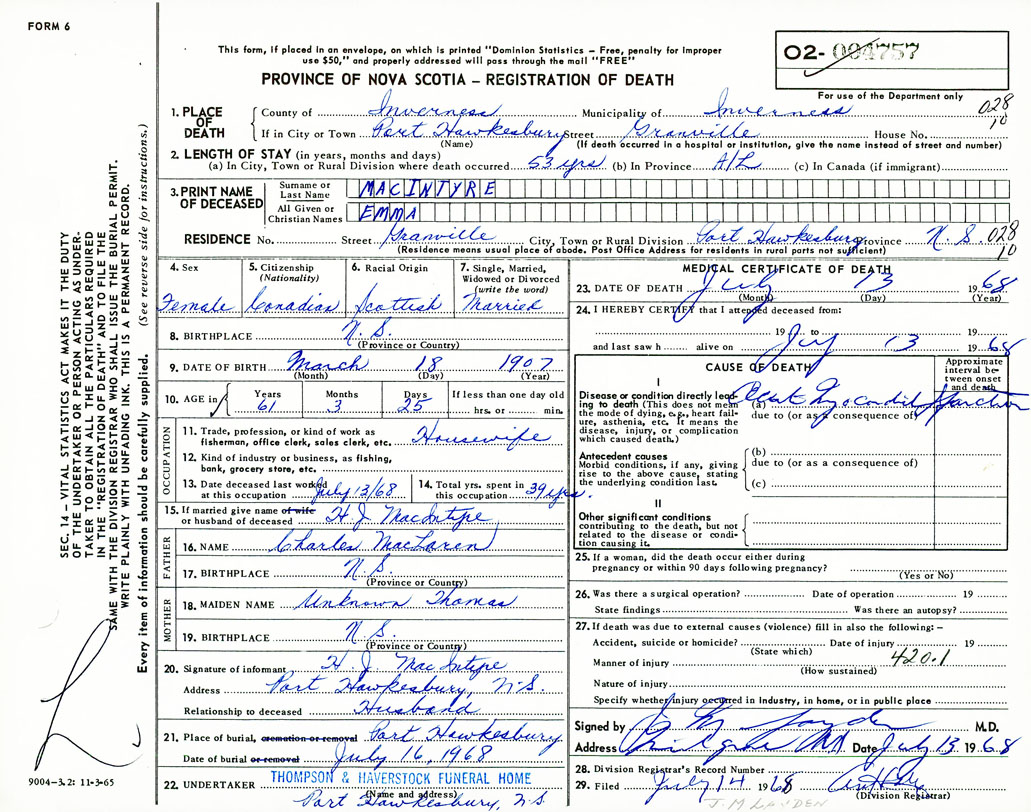 FORM 6
This form, if placed in an envelope, on which is printed "Dominion Statistics – Free, penalty for improper
use $50," and properly addressed will pass through the mail "FREE"
PROVINCE OF NOVA SCOTIA – REGISTRATION OF DEATH
O2- 004757
For use of the Department only
1. PLACE OF DEATH County of Inverness Municipality of Inverness 028 10
If in City or Town Port Hawkesbury Street Granville House No.
(Name) (If death occurred in a hospital or institution, give the name instead of street and number)
2. LENGTH OF STAY (in years, months and days)
(a) In City, Town or Rural Division where death occurred 53 yrs (b) In Province A/L (c) In Canada (if immigrant)
3. PRINT NAME OF DECEASED
Surname or Last Name MACINTYRE
All Given or Christian Names EMMA
RESIDENCE No. Street Granville City, Town or Rural Division Port Hawkesbury Province N.S. 028 10
(Residence means usual place of abode. Post Office Address for residents in rural parts not sufficient)
4. Sex Female
5. Citizenship (Nationality) Canadian
6. Racial Origin Scottish
7. Single, Married, Widowed or Divorced (write the word) Married
8. BIRTHPLACE N.S.
(Province or Country)
9. DATE OF BIRTH March 18 1907
(Month) (Day) (Year)
10. AGE in Years 61 Months 3 Days 25 If less than one day old hrs. or min.
OCCUPATION
11. Trade, profession, or kind of work as fisherman, office clerk, sales clerk, etc. Housewife
12. Kind of industry or business, as fishing, bank, grocery store, etc.
13. Date deceased last worked at this occupation July 13/68
14. Total yrs. spent in this occupation 39 yrs.
15. If married give name of wife or husband of deceased H J MacIntyre
FATHER
16. NAME Charles MacLaren
17. BIRTHPLACE N.S.
(Province or Country)
MOTHER
18. MAIDEN NAME Unknown Thomas
19. BIRTHPLACE N.S.
(Province or Country)
20. Signature of informant H. J. MacIntyre
Address Port Hawkesbury, N.S.
Relationship to deceased Husband
21. Place of burial, cremation or removal Port Hawkesbury
Date of burial or removal July 16, 1968
22. UNDERTAKER THOMPSON & HAVERSTOCK FUNERAL HOME
(Name and address)
Port Hawkesbury, N.S.
MEDICAL CERTIFICATE OF DEATH
23. DATE OF DEATH July 13 1968
(Month) (Day) (Year)
24. I HEREBY CERTIFY that I attended deceased from:
19 to 19
and last saw h alive on July 13 1968
CAUSE OF DEATH
Approximate interval between onset and death
I
Disease or condition directly leading to death (This does not mean the mode of dying, e.g., heart failure, asthenia, etc. It means the disease, injury, or complication which caused death.)
(a) Acute Myocardial Infarction
due to (or as a consequence of)
Antecedent causes
Morbid conditions, if any, giving rise to the above cause, stating the underlying condition last.
(b)
due to (or as a consequence of)
(c)
II
Other significant conditions contributing to the death, but not related to the disease or condition causing it.
25. If a woman, did the death occur either during pregnancy or within 90 days following pregnancy?
(Yes or No)
26. Was there a surgical operation? Date of operation 19
State findings Was there an autopsy?
27. If death was due to external causes (violence) fill in also the following: –
Accident, suicide or homicide? Date of injury 19
(State which)
Manner of injury 420.1
(How sustained)
Nature of injury
Specify whether injury occurred in industry, in home, or in public place
Signed by M.D.
Address Date July 13 1968
28. Division Registrar's Record Number
29. Filed July 14 1968
(Division Registrar)
J. M LAYDEN
SEC. 14 – VITAL STATISTICS ACT MAKES IT THE DUTY
OF THE UNDERTAKER OR PERSON ACTING AS UNDER-
TAKER TO OBTAIN ALL THE PARTICULARS REQUIRED
IN THE "REGISTRATION OF DEATH" AND TO FILE THE
SAME WITH THE DIVISION REGISTRAR WHO SHALL ISSUE THE BURIAL PERMIT.
WRITE PLAINLY WITH UNFADING INK. THIS IS A PERMANENT RECORD.
Every item of information should be carefully supplied. (See reverse side for instructions.)
9004-3.2: 11-3-65